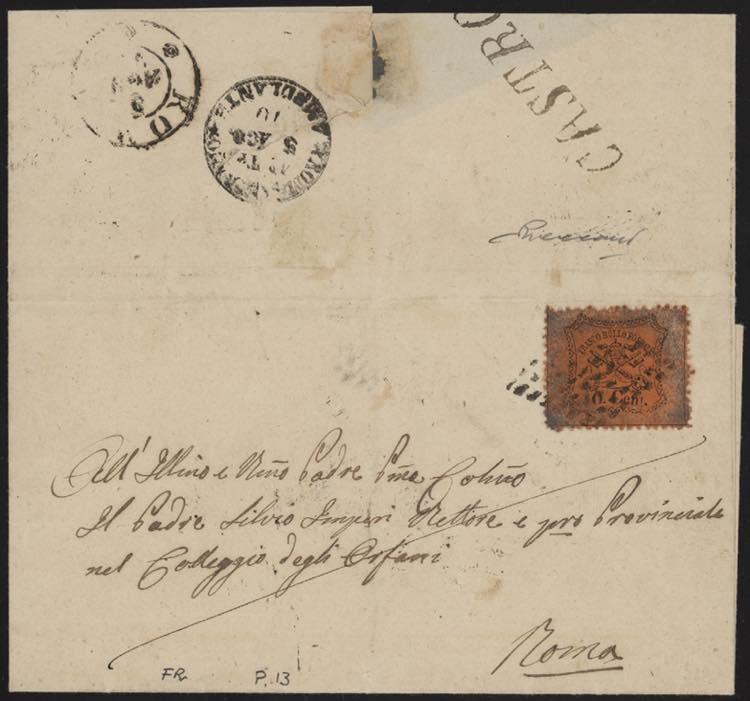 CASTRO
ROM
AMBULANTE
10
AGO
FRANCO BOLLO POSTALE
10. Cent.
All' Illmo e Rmo Padre Pne Colmo
Il Padre Silvio Imperi Rettore e pro Provinciale
nel Colleggio degli Orfani
Roma
FR
P. 13